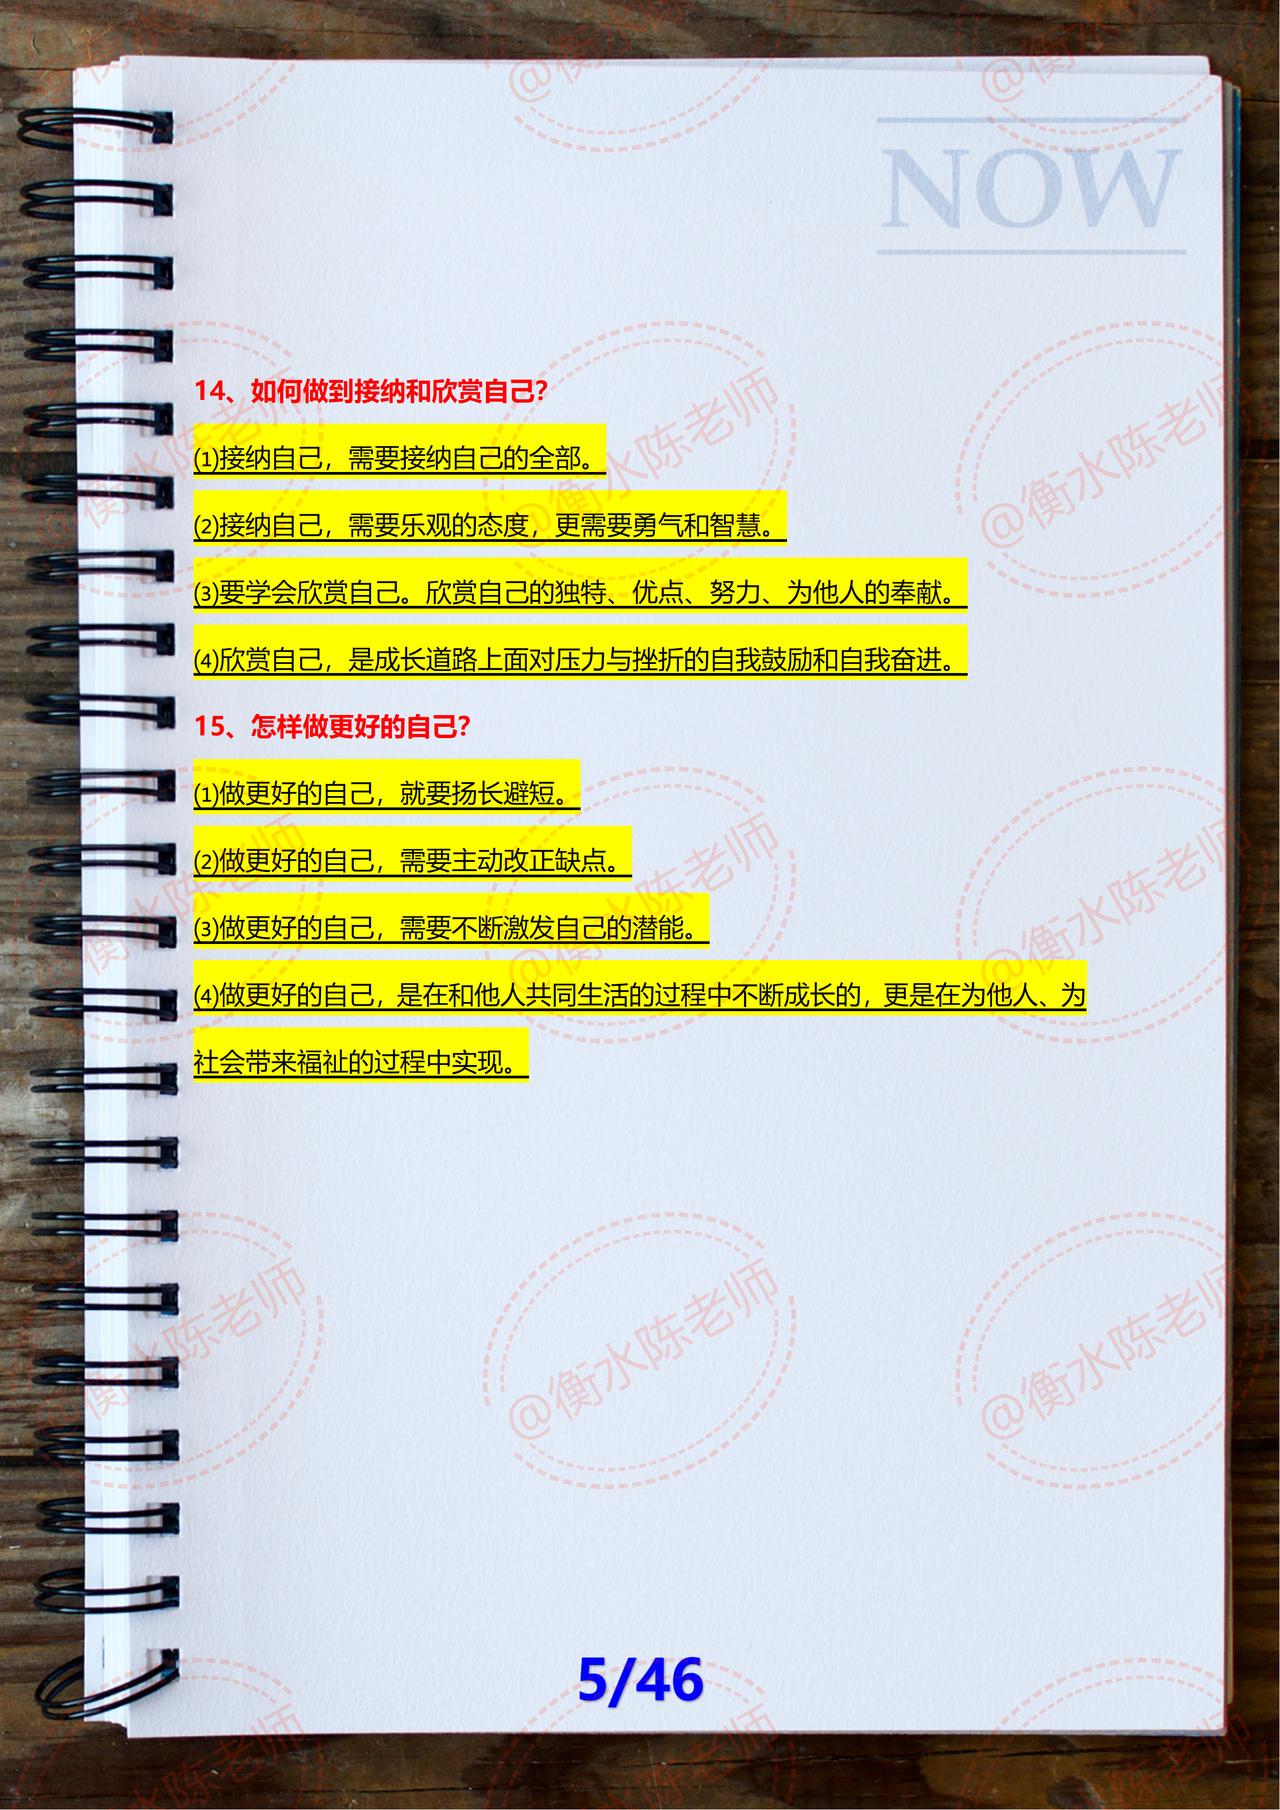 NOW
14、如何做到接纳和欣赏自己？
⑴接纳自己，需要接纳自己的全部。
⑵接纳自己，需要乐观的态度，更需要勇气和智慧。
⑶要学会欣赏自己。欣赏自己的独特、优点、努力、为他人的奉献。
⑷欣赏自己，是成长道路上面对压力与挫折的自我鼓励和自我奋进。
15、怎样做更好的自己？
⑴做更好的自己，就要扬长避短。
⑵做更好的自己，需要主动改正缺点。
⑶做更好的自己，需要不断激发自己的潜能。
⑷做更好的自己，是在和他人共同生活的过程中不断成长的，更是在为他人、为
社会带来福祉的过程中实现。
5/46
@衡水陈老师
@衡水陈老师
@衡水陈老师
@衡水陈老师
@衡水陈老师
@衡水陈老师
@衡水陈老师
@衡水陈老师
@衡水陈老师